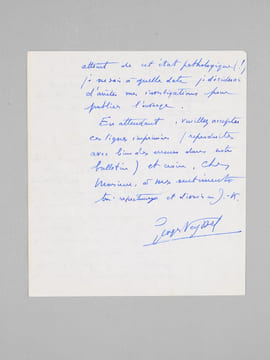 atteint de cet état pathologique (!)
je ne sais à quelle date je déciderai
d'arrêter mes investigations pour
publier l'ouvrage.
En attendant, veuillez accepter
ces lignes imprimées (reproduites
avec bien des erreurs dans votre
bulletin) et croire, Cher
Monsieur, à mes sentiments
très respectueux et